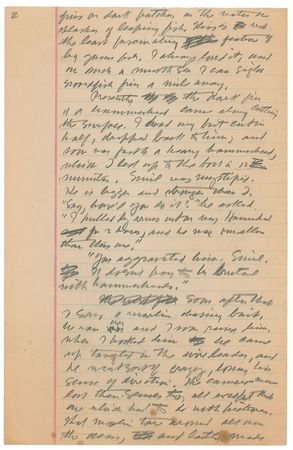 2
fins or dark patches in the water or
splashes of leaping fish. This is
the least fascinating feature of
big game fish. I always loved it, and
on such a smooth sea I can sight
swordfish fins a mile away.
Presently the dark fin
of a hammerhead came along cutting
the surface. I had my bait cut in
half, dropped back to him, and
soon was fast to a heavy hammerhead,
which I led up to the boat in
minutes. Emil was mystified.
He is bigger and stronger than I.
"Say, how'd you do it?" he asked.
"I pulled my arms out on my hammerhead
for 2 hours, and he was smaller
than this one."
"You aggravated him, Emil.
It doesn't pay to be brutal
with hammerheads."
Soon after that
I saw a marlin chasing bait.
We ran and I soon raised him.
When I hooked him he came
up tangled in the wire leader, and
he went sort of crazy, losing his
sense of direction. The cameramen
lost their senses too, all except the
one which had to do with pictures.
That marlin tore around all over
the ocean, and